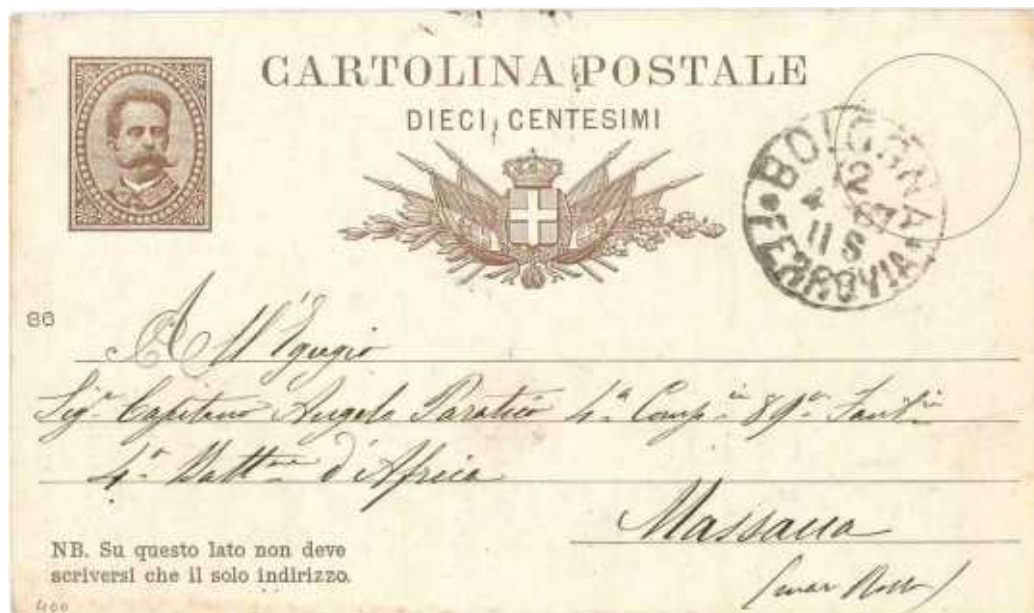 CARTOLINA POSTALE
DIECI CENTESIMI
BOLOGNA
FERROVIA
86
All'Egregio
Sigr Capitano Angelo Paratico 4a Compia 89o Fantia
4o Battne d'Africa
Massaua
(mar Rosso)
NB. Su questo lato non deve
scriversi che il solo indirizzo.
400